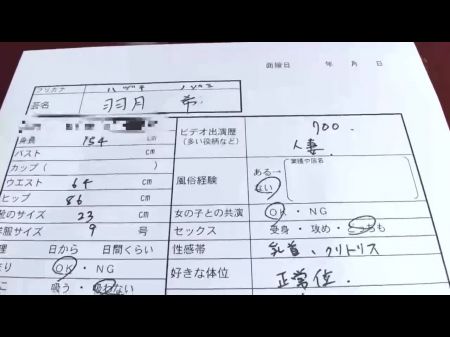 面接日 年 月 日
フリガナ ハヅキ
芸名 羽月 希
身長 154 cm
バスト cm
カップ( )
ウエスト 64 cm
ヒップ 86 cm
靴のサイズ 23 cm
洋服サイズ 9 号
生理 日から 日間くらい
OK・NG
吸う・吸わない
ビデオ出演歴 700.
(多い役柄など) 人妻
風俗経験 ある→ (業種や店名)
ない
女の子との共演 OK・NG
セックス 受身・攻め・どっちも
性感帯 乳首、クリトリス
好きな体位 正常位